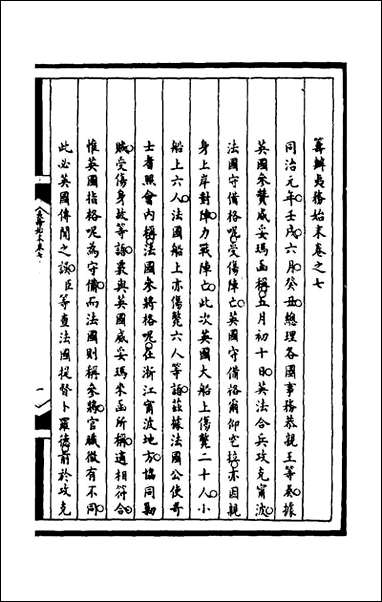 籌辦夷務始末卷之七
同治元年壬戌六月癸丑總理各國事務恭親王等奏據
英國參贊威妥瑪函稱五月初十日英法合兵攻克甯波
法國守備格呢受傷陣亡英國守備洛爾仰它接亦因親
身上岸對陣力戰陣亡此次英國大船上傷斃二十人小
船上六人法國船上亦傷斃六人等語茲據法國公使哥
士耆照會內稱法國參將格呢在浙江甯波地方協同勦
賊受傷身故等語覈與英國威妥瑪來函所稱適相符合
惟英國指格呢為守備而法國則稱參將官職微有不同
此必英國傳聞之誤臣等查法國提督卜羅德前於攻克